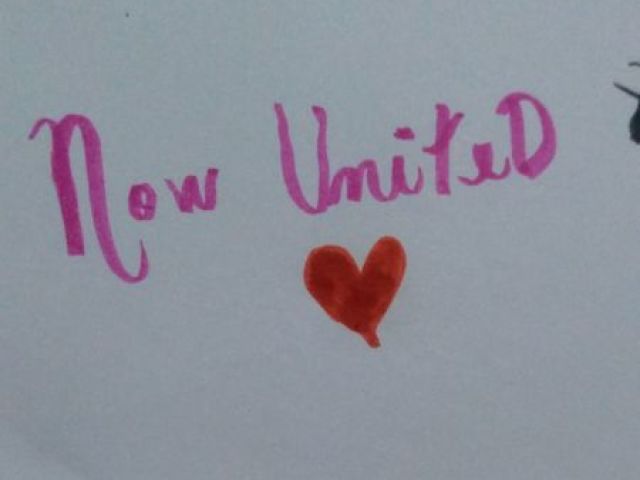 Now UniteD